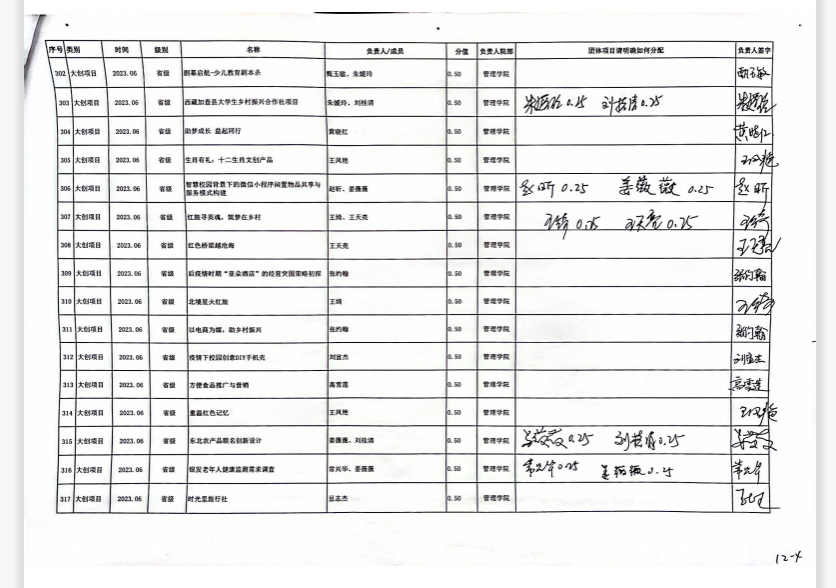 序号 类别 时间 级别 名称 负责人/成员 分值 负责人院部 团体项目请明确如何分配 负责人签字
302 大创项目 2023.06 省级 剧幕启航-少儿教育剧本杀 甄玉敏、朱媛玲 0.50 管理学院 甄玉敏
303 大创项目 2023.06 省级 西藏加查县大学生乡村振兴合作社项目 朱媛玲、刘桂清 0.50 管理学院 朱媛玲 0.25 刘桂清 0.25 朱媛玲
304 大创项目 2023.06 省级 助梦成长 益起同行 黄晓红 0.50 管理学院 黄晓红
305 大创项目 2023.06 省级 生肖有礼：十二生肖文创产品 王凤艳 0.50 管理学院 王凤艳
306 大创项目 2023.06 省级 智慧校园背景下的微信小程序闲置物品共享与
服务模式构建 赵昕、姜薇薇 0.50 管理学院 赵昕 0.25 姜薇薇 0.25 赵昕
307 大创项目 2023.06 省级 红旅寻英魂，筑梦在乡村 王绮、王天亮 0.50 管理学院 王绮 0.25 王天亮 0.25 王绮
308 大创项目 2023.06 省级 红色桥梁越沧海 王天亮 0.50 管理学院 王天亮
309 大创项目 2023.06 省级 后疫情时期“亚朵酒店”的经营突围策略初探 张约翰 0.50 管理学院 张约翰
310 大创项目 2023.06 省级 北境星火红旅 王绮 0.50 管理学院 王绮
311 大创项目 2023.06 省级 以电商为媒，助乡村振兴 张约翰 0.50 管理学院 张约翰
312 大创项目 2023.06 省级 疫情下校园创意DIY手机壳 刘宣杰 0.50 管理学院 刘宣杰
313 大创项目 2023.06 省级 方便食品推广与营销 高雪莲 0.50 管理学院 高雪莲
314 大创项目 2023.06 省级 重温红色记忆 王凤艳 0.50 管理学院 王凤艳
315 大创项目 2023.06 省级 东北农产品联名创新设计 姜薇薇、刘桂清 0.50 管理学院 姜薇薇 0.25 刘桂清 0.25 姜薇薇
316 大创项目 2023.06 省级 银发老年人健康监测需求调查 常兴华、姜薇薇 0.50 管理学院 常兴华 0.25 姜薇薇 0.25 常兴华
317 大创项目 2023.06 省级 时光里旅行社 豆志杰 0.50 管理学院
12-4